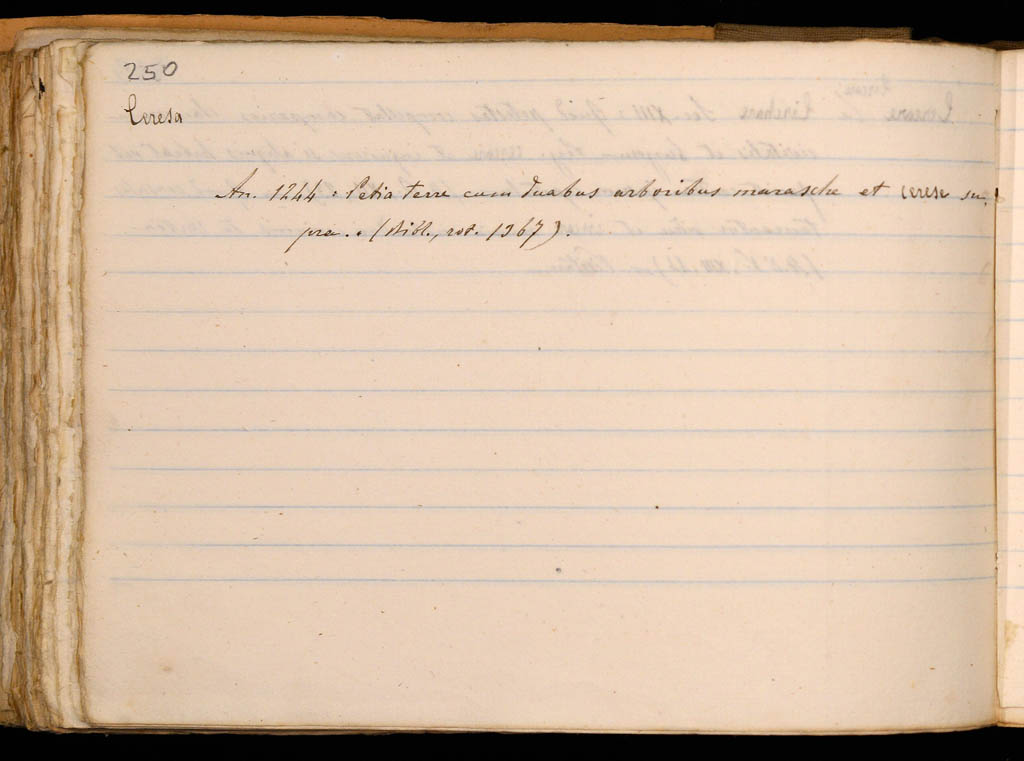 250
Ceresa
An. 1244 : Petia terre cum duabus arboribus marasche et cerese su,
pra . : (Bibl., rot. 1367).